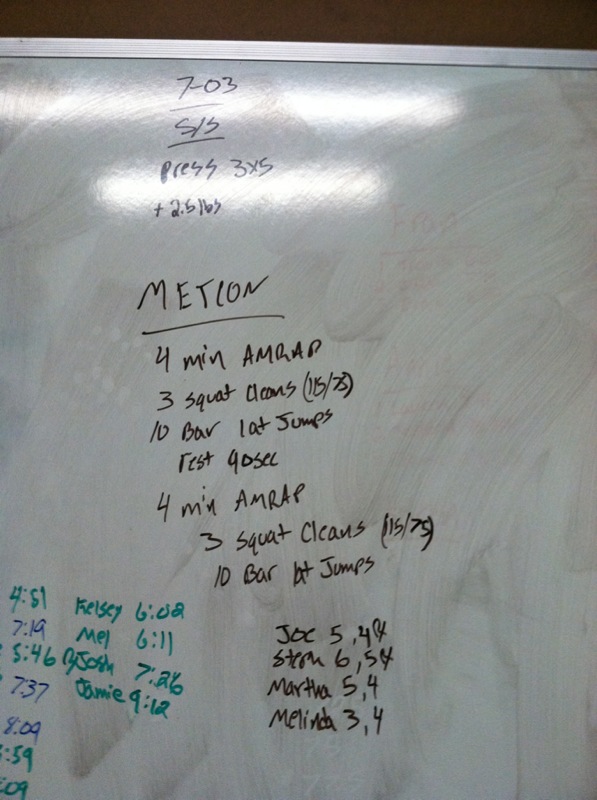 7-03
S/S
press 3x5
+ 2.5 lbs
METCON
4 min AMRAP
3 squat cleans (115/75)
10 Bar lat Jumps
rest 90sec
4 min AMRAP
3 squat Cleans (115/75)
10 Bar lat Jumps
4:51
7:19
5:46
7:37
8:09
:59
:09
Kelsey 6:02
Mel 6:11
Josh 7:26
Jamie 9:12
Joe 5, 4
6, 5
Martha 5, 4
Melinda 3, 4